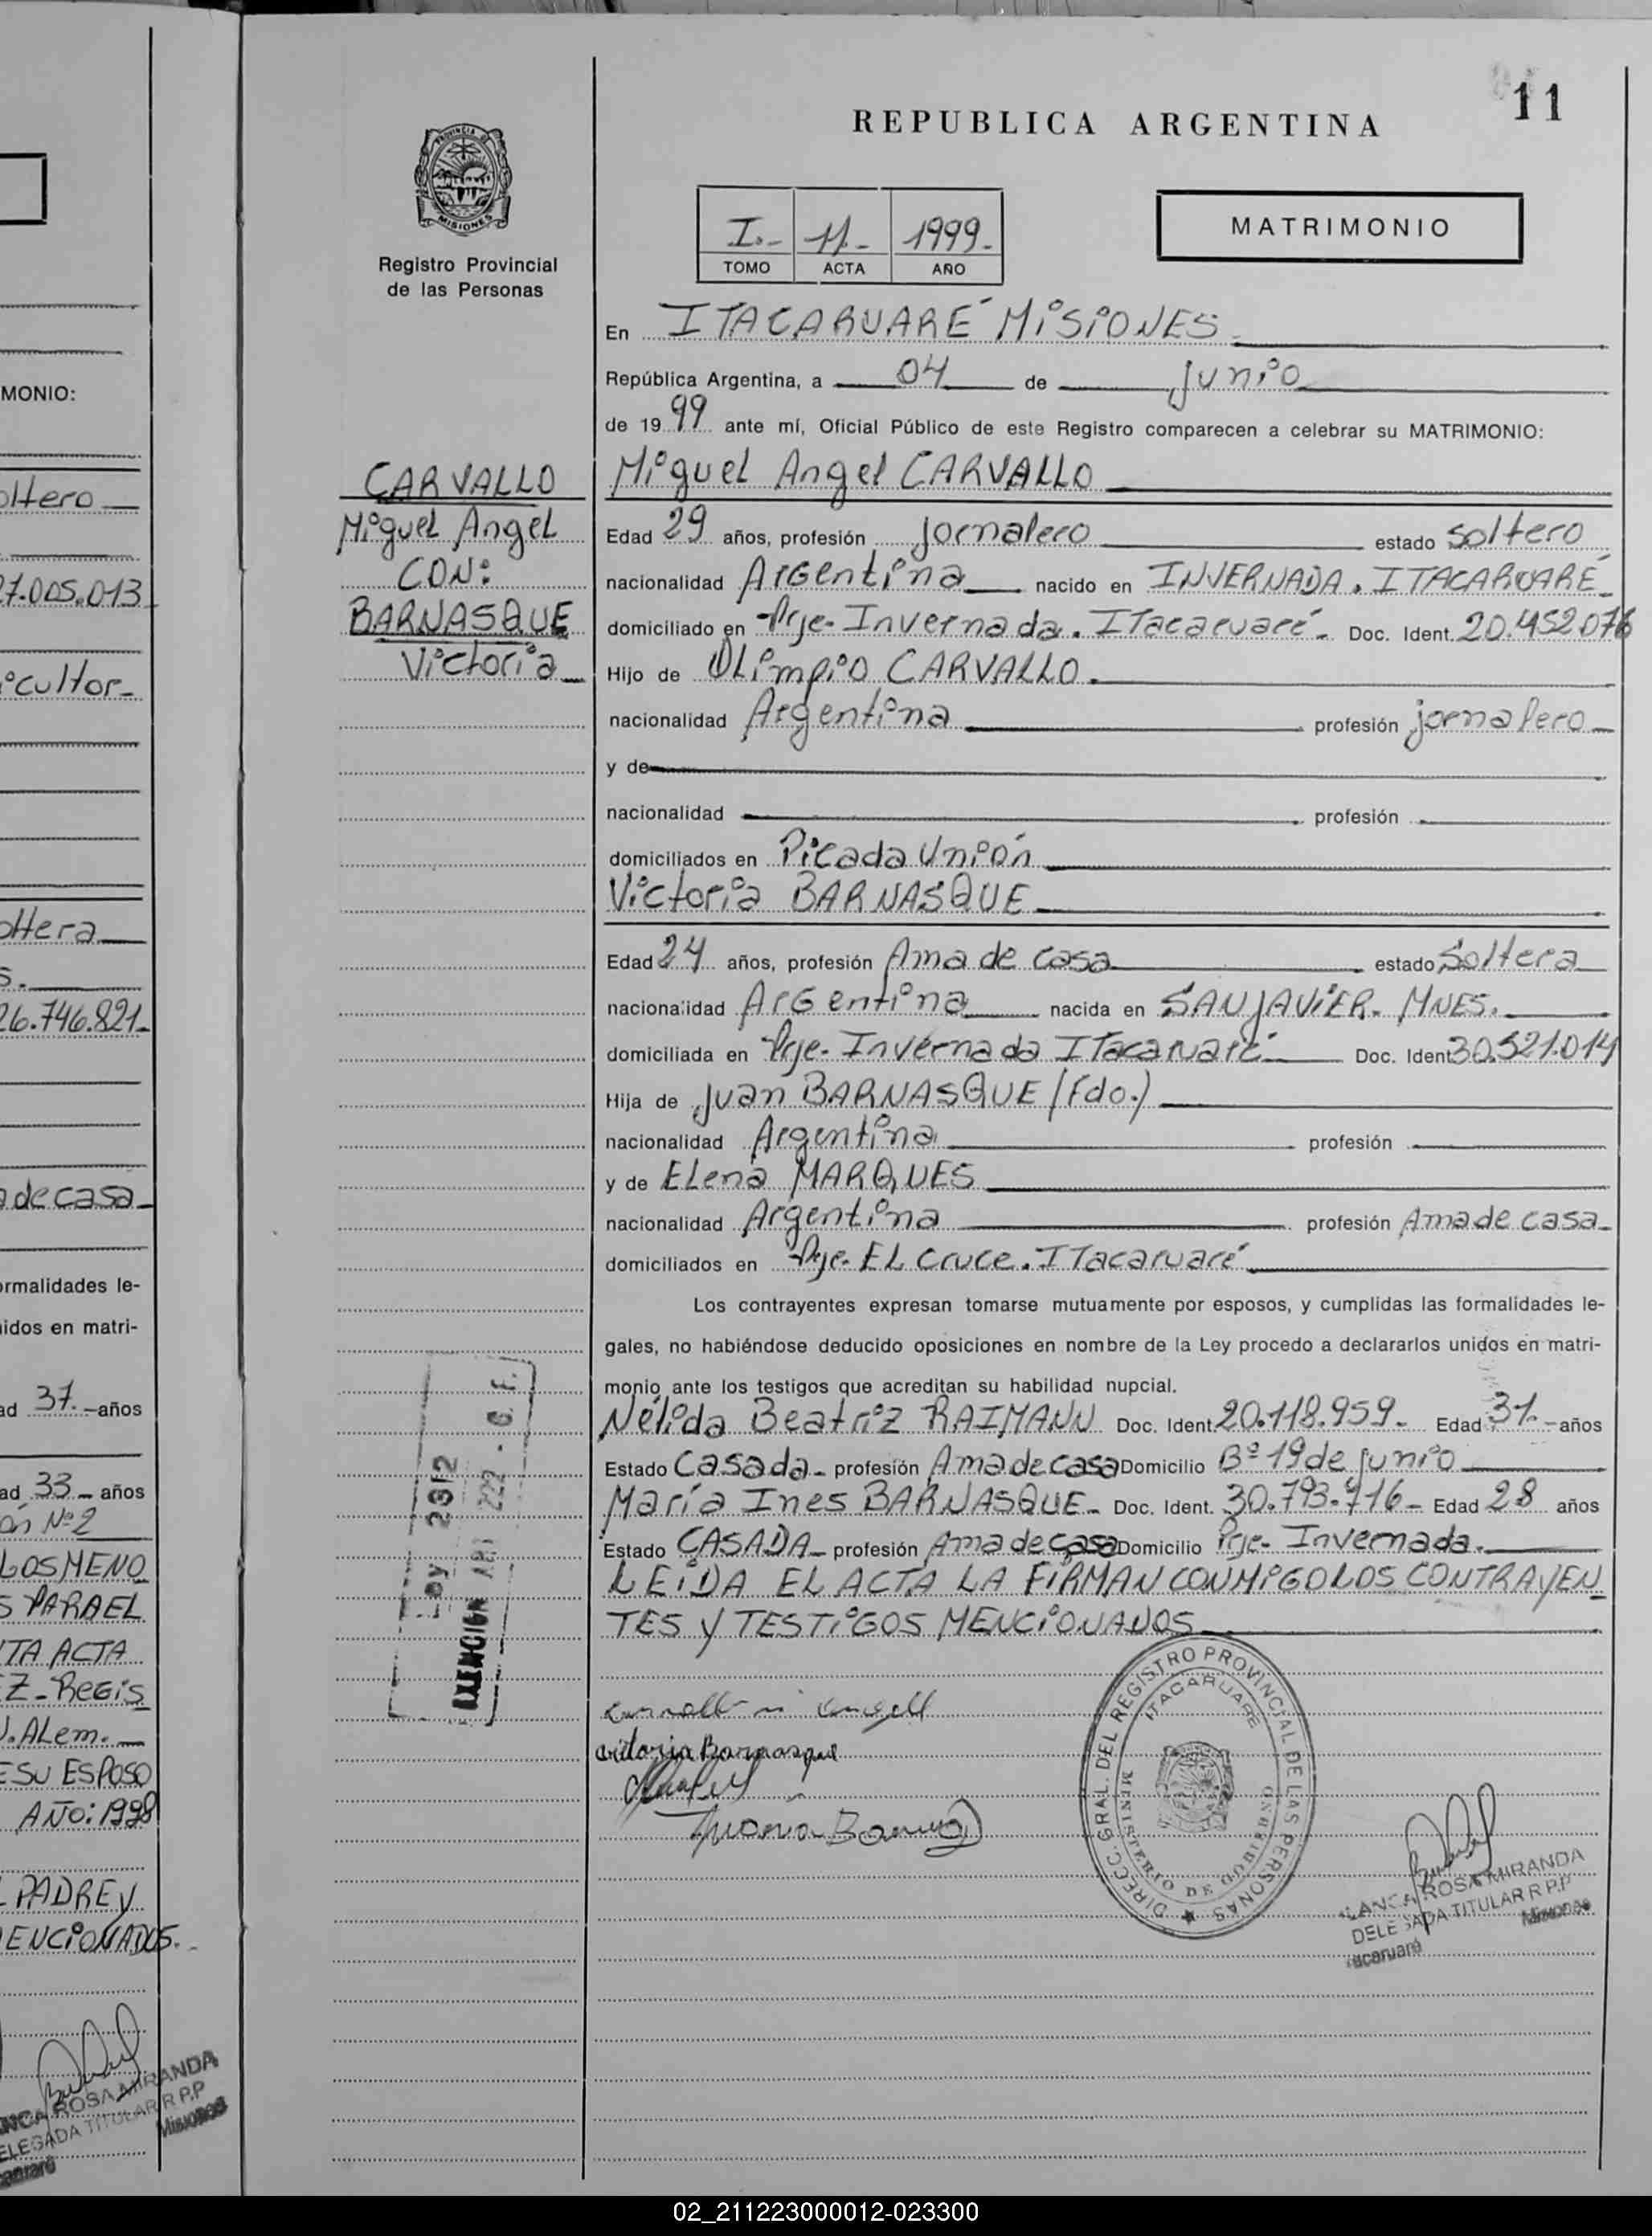 11
REPUBLICA ARGENTINA
PROVINCIA DE
MISIONES
Registro Provincial
de las Personas
I.- 11- 1999-
TOMO ACTA AÑO
MATRIMONIO
En ITACARUARÉ MISIONES
República Argentina, a 04 de junio
de 19 99 ante mí, Oficial Público de este Registro comparecen a celebrar su MATRIMONIO:
CARVALLO
Miguel Angel
CON:
BARNASQUE
Victoria
Miguel Angel CARVALLO
Edad 29 años, profesión jornalero estado soltero
nacionalidad Argentina nacido en INVERNADA. ITACARUARÉ
domiciliado en Prje. Invernada. ITacaruaré. Doc. Ident. 20.452.076
Hijo de OLimpio CARVALLO.
nacionalidad Argentina profesión jornalero
y de
nacionalidad profesión
domiciliados en Picada Unión
Victoria BARNASQUE
Edad 24 años, profesión Ama de casa estado Soltera
nacionalidad Argentina nacida en SAN JAVIER. MNES.
domiciliada en Prje. Invernada ITacaruaré Doc. Ident 30.521.014
Hija de Juan BARNASQUE (Fdo.)
nacionalidad Argentina profesión
y de ELena MARQUES
nacionalidad Argentina profesión Ama de casa
domiciliados en Prje. EL Cruce. ITacaruaré
Los contrayentes expresan tomarse mutuamente por esposos, y cumplidas las formalidades le-
gales, no habiéndose deducido oposiciones en nombre de la Ley procedo a declararlos unidos en matri-
monio ante los testigos que acreditan su habilidad nupcial.
Nélida Beatriz RAIMANN Doc. Ident. 20.118.959- Edad 31.- años
Estado Casada- profesión Ama de casa Domicilio Bº 19 de junio
María Ines BARNASQUE- Doc. Ident. 30.793.716- Edad 28 años
Estado CASADA- profesión Ama de casa Domicilio Prje- Invernada.
LEIDA EL ACTA LA FIRMAN CONMIGO LOS CONTRAYEN
TES Y TESTIGOS MENCIONADOS
Ley 2312
EXENCION ART 222 - C. F.
Barnasque
DIRECC. GRAL. DEL REGISTRO PROVINCIAL DE LAS PERSONAS
ITACARUARE
MINISTERIO DE GOBIERNO
LANCA ROSA MIRANDA
DELEGADA TITULAR R P.P
Misiones
MONIO:
oltero
27.005.013
icultor-
oltera
S.
26.746.821-
a de casa
ormalidades le-
nidos en matri-
ad 37.- años
ad 33- años
ón Nº 2
LOS MENO
S PARA EL
TA ACTA
Z- Regis
.ALem.-
E SU ESPOSO
AÑO: 1998
PADRE Y
ENCIONADOS.-
NCA ROSA MIRANDA
ELEGADA TITULAR R P.P
Misiones
02_211223000012-023300